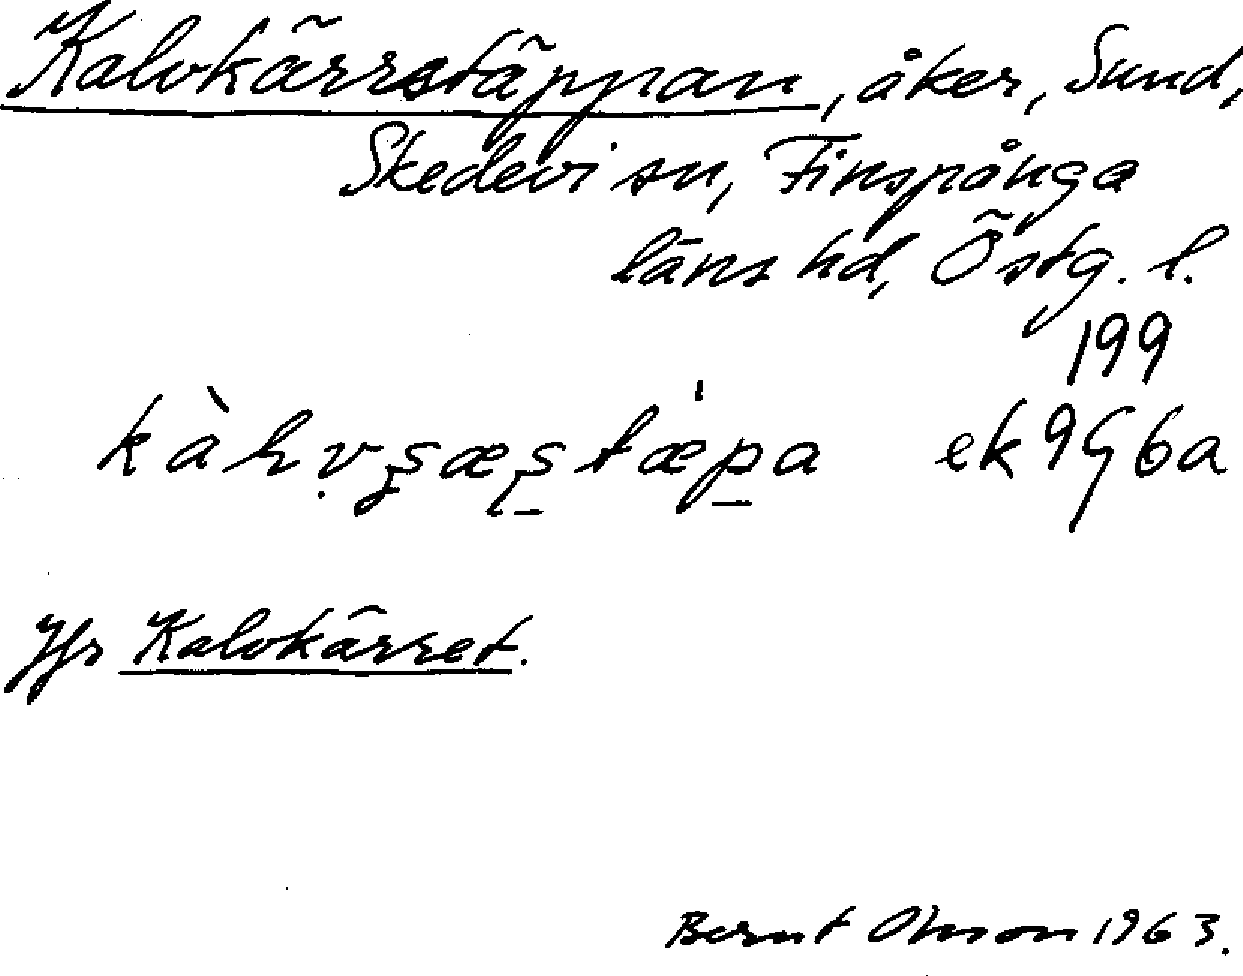 Kalvkärrstäppan, åker, Sund,
Skedevi sn, Finspånga
läns hd, Östg. l.
199
ek 9G6a
Jfr Kalvkärret.
Bernt Olsson 1963.